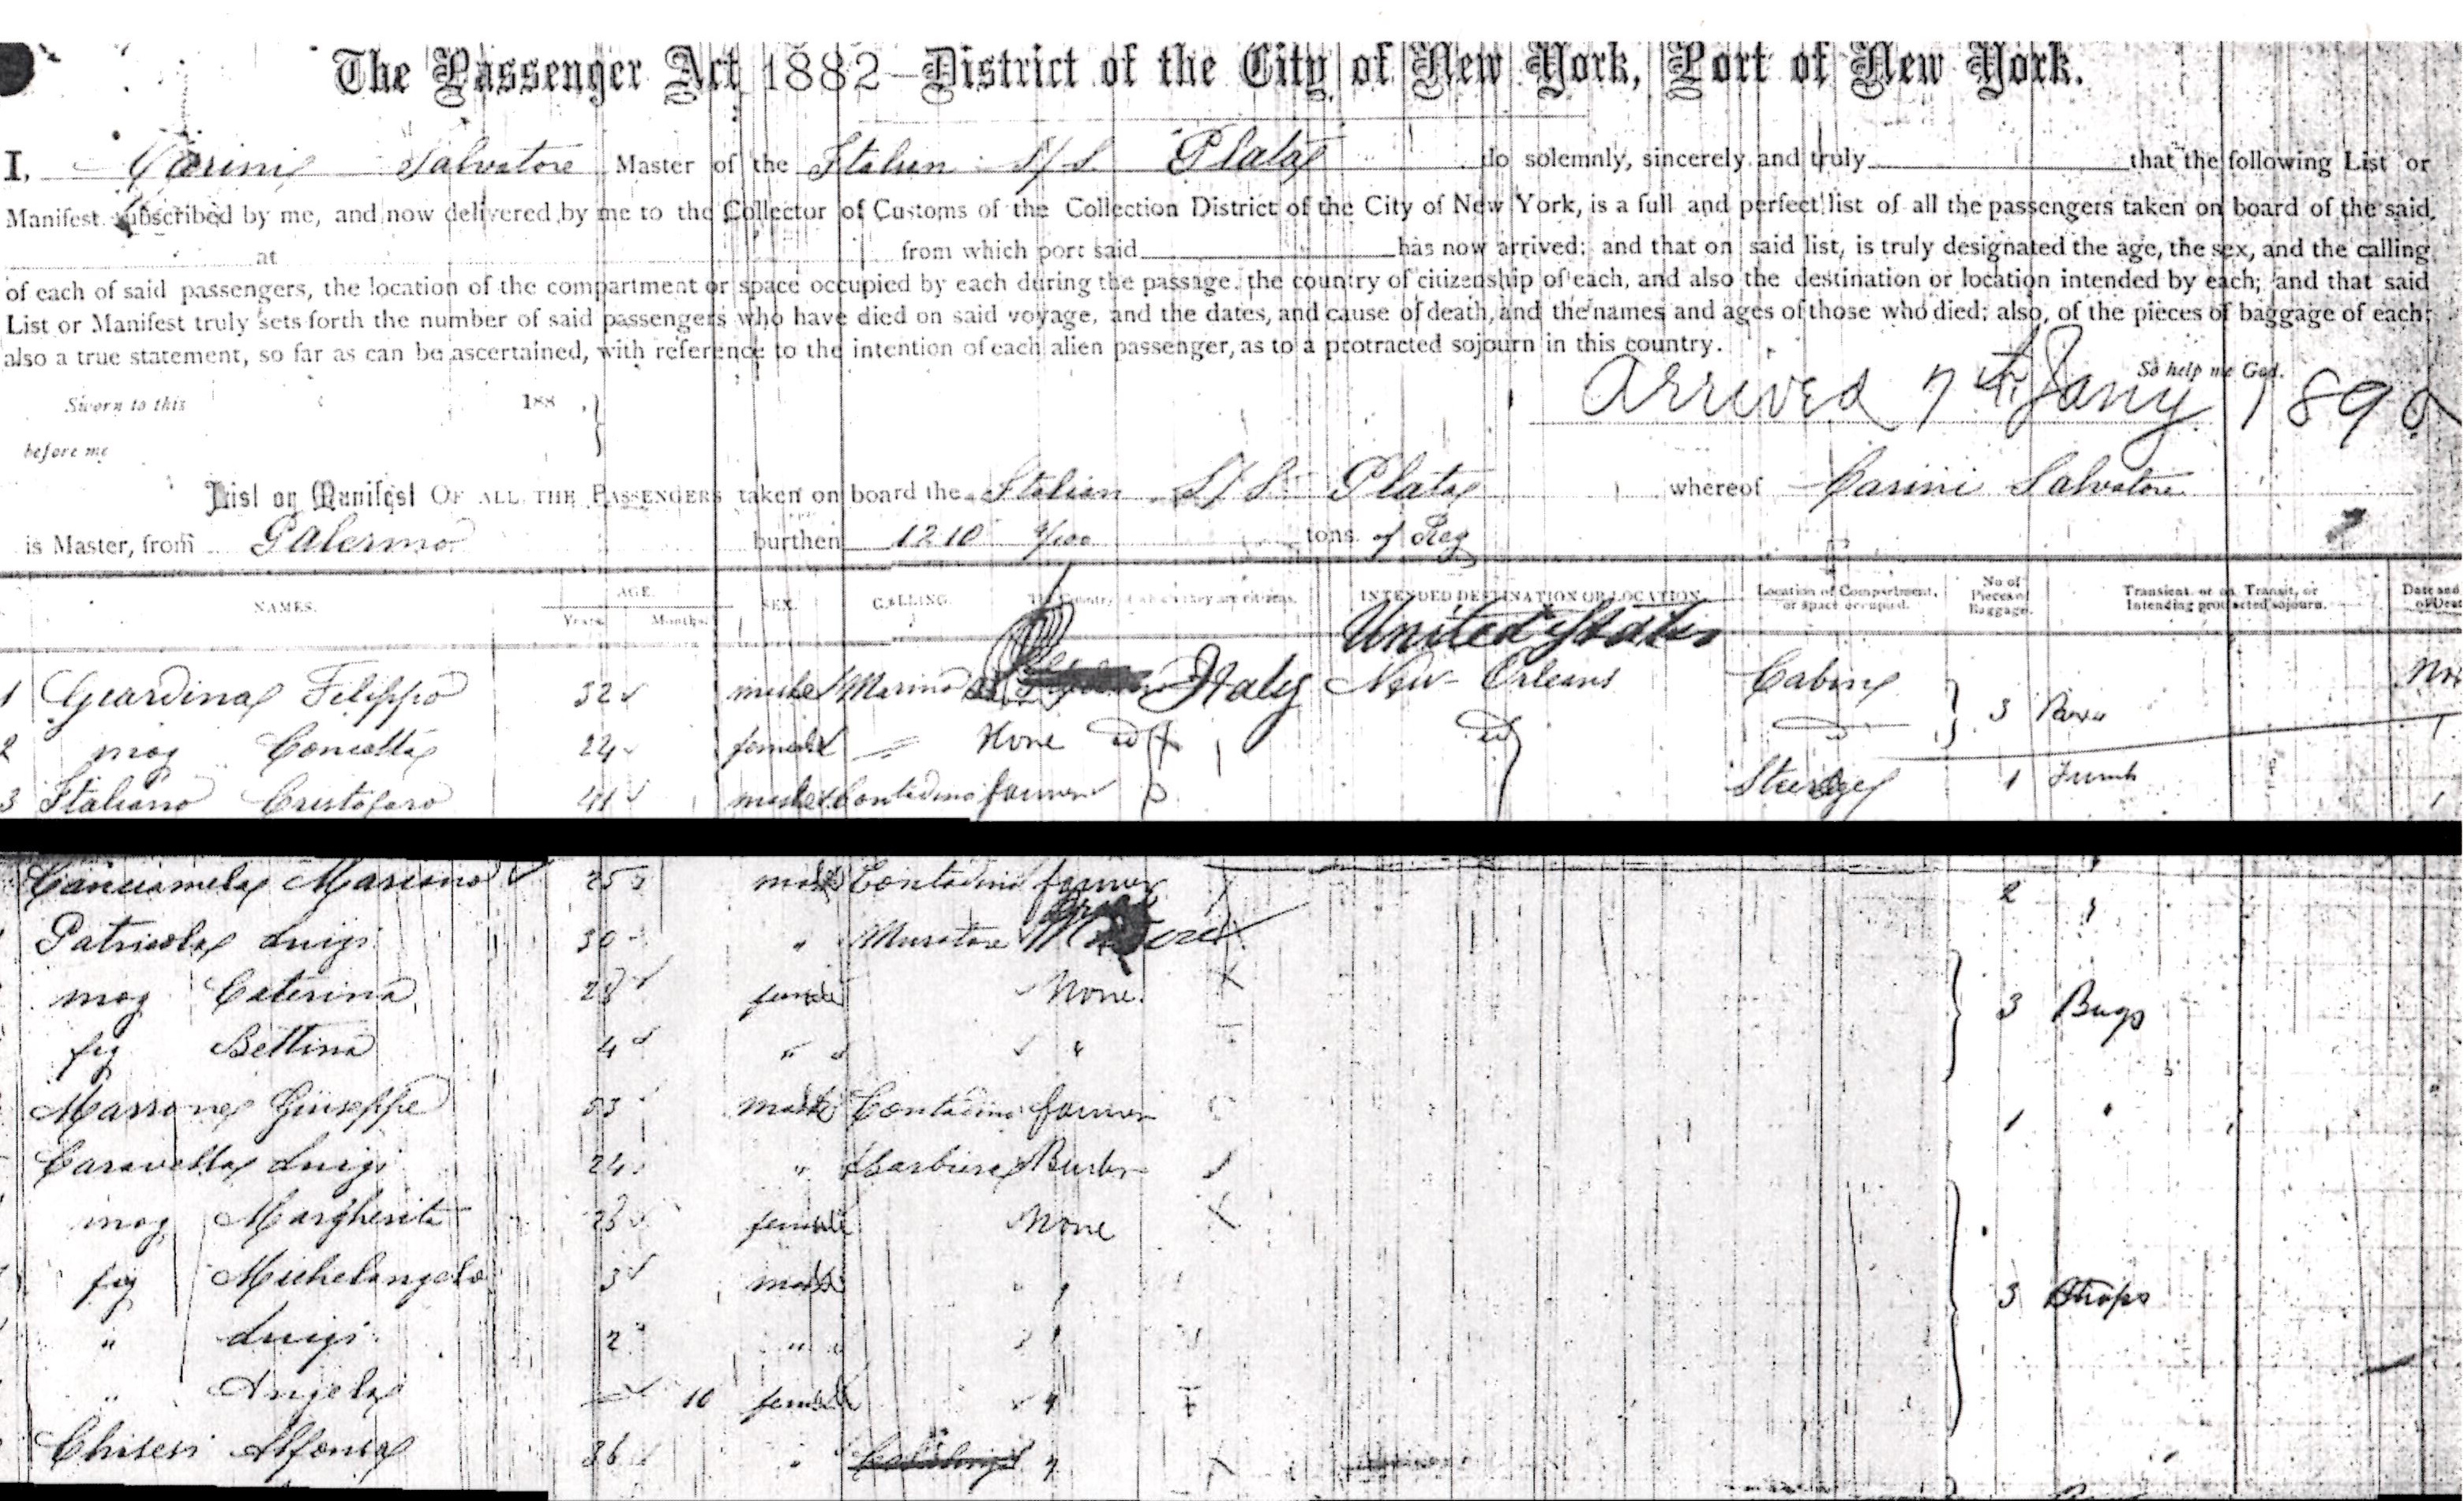 The Passenger Act 1882—District of the City of New York, Port of New York.
I, Carini Salvatore Master of the Italian S/S. Plata do solemnly, sincerely and truly that the following List or
Manifest subscribed by me, and now delivered by me to the Collector of Customs of the Collection District of the City of New York, is a full and perfect list of all the passengers taken on board of the said
at from which port said has now arrived; and that on said list, is truly designated the age, the sex, and the calling
of each of said passengers, the location of the compartment or space occupied by each during the passage, the country of citizenship of each, and also the destination or location intended by each; and that said
List or Manifest truly sets forth the number of said passengers who have died on said voyage, and the dates, and cause of death, and the names and ages of those who died; also, of the pieces of baggage of each;
also a true statement, so far as can be ascertained, with reference to the intention of each alien passenger, as to a protracted sojourn in this country.
So help me God.
Sworn to this 188
Arrived 7th Jany 189
before me
List or Manifest OF ALL THE PASSENGERS taken on board the Italian S/S. Plata whereof Carini Salvatore
is Master, from Palermo burthen 1210 tons of Reg
NAMES. AGE. Years. Months. SEX. CALLING. The Country of which they are citizens. INTENDED DESTINATION OR LOCATION. Location of Compartment, or space occupied. No of Pieces of Baggage. Transient, or in Transit, or Intending protracted sojourn. Date and
United States
1 Geardina Filippo 32 male Marino Italy New-Orleans Cabin
3
2 mog Concetta 24 female None do do
3 Italiano Cristofaro 41 male Contadino farmer Steerage 1
Canciamela Mariano 25 male Contadino farmer 2
Patricola Luigi 30 " Muratore
mog Caterina 28 female None.
3 Bags
fig Bettina 4 " "
Marrone Giuseppe 53 male Contadino farmer 1 "
Caravella Luigi 24 " Barbiere Barber
mog Margherita 23 female None
fig Michelangelo 3 male "
3
" Luigi 2 " "
" Angela 10 female "
Chiseri Alfonsa 36 " "